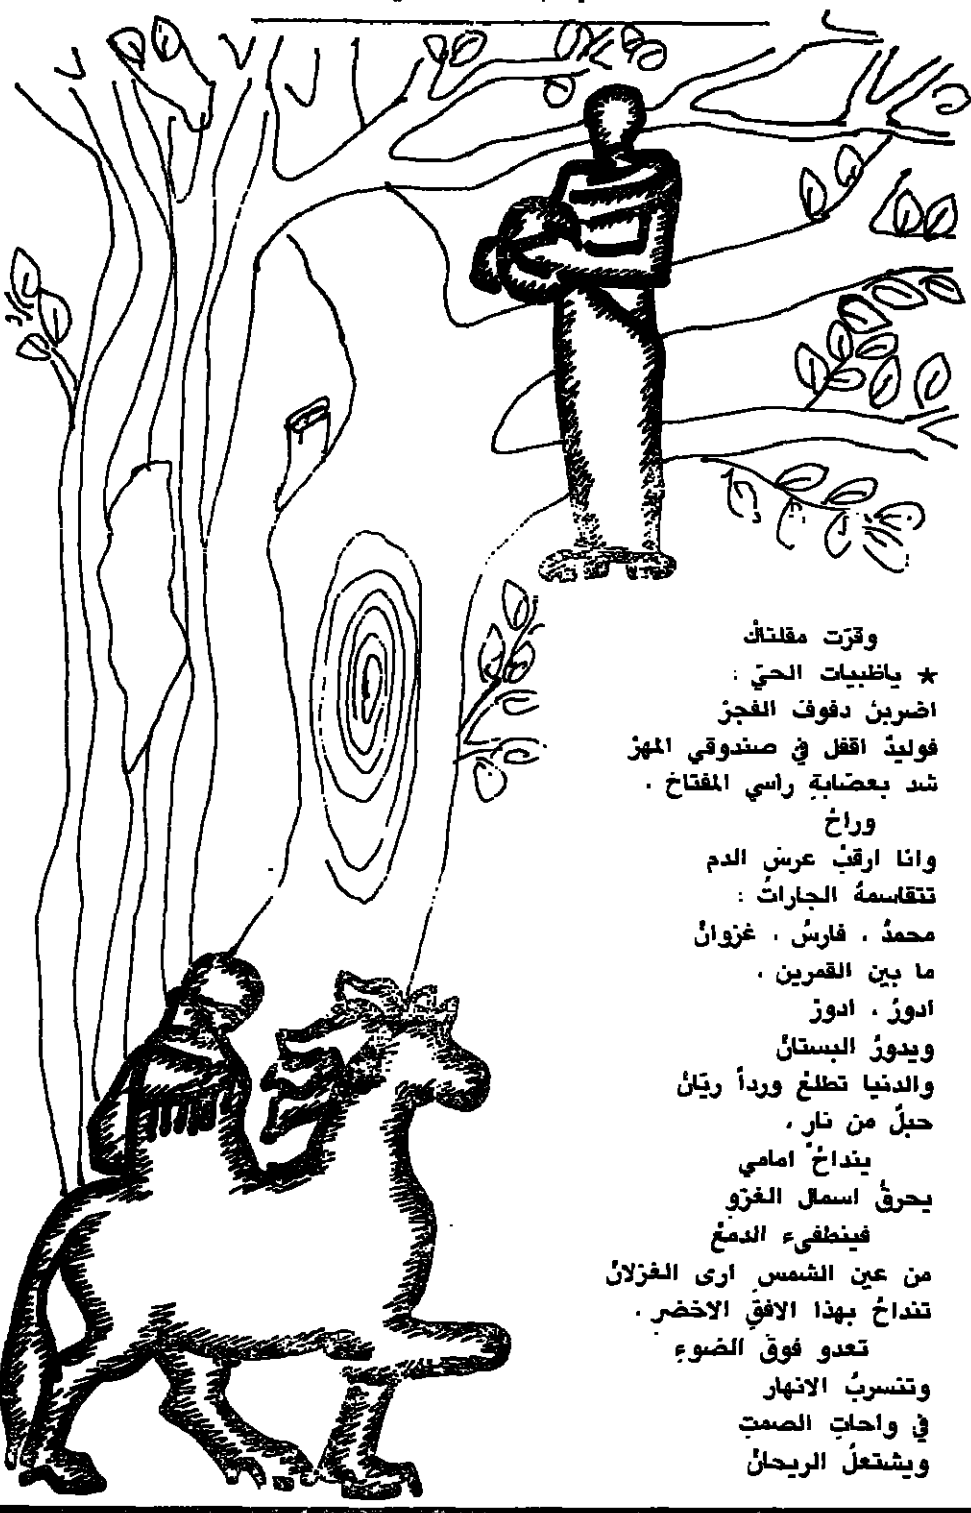 وقرّت مقلتاكْ
★ ياظبيات الحيّ :
اضربنْ دفوفَ الفجرْ
فوليدٌ اقفل في صندوقي المهرْ
شد بعصّابةِ رأسي المفتاح .
وراحْ
وانا ارقبْ عرسَ الدم
تتقاسمهُ الجاراتُ :
محمدُ ، فارسُ ، غزوانْ
ما بين القمرين .
ادورُ ، ادورْ
ويدورُ البستانْ
والدنيا تطلعْ ورداً ريّانْ
حبلٌ من نارِ ،
ينداحُ امامي
يحرقُ اسمال الغزوِ
فينطفيء الدمعْ
من عينِ الشمسِ ارى الغزلانْ
تنداحُ بهذا الافقِ الاخضرِ .
تعدو فوقَ الضوءِ
وتنسربُ الانهار
في واحاتِ الصمتِ
ويشتعلُ الريحانْ